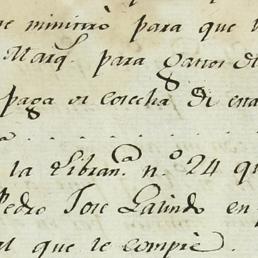 ministrò para que
Marq. para gastos de
paga or cosecha de
la Libran.ª n.º 24 qu
Pedro Jose Galindo en
que le compré.